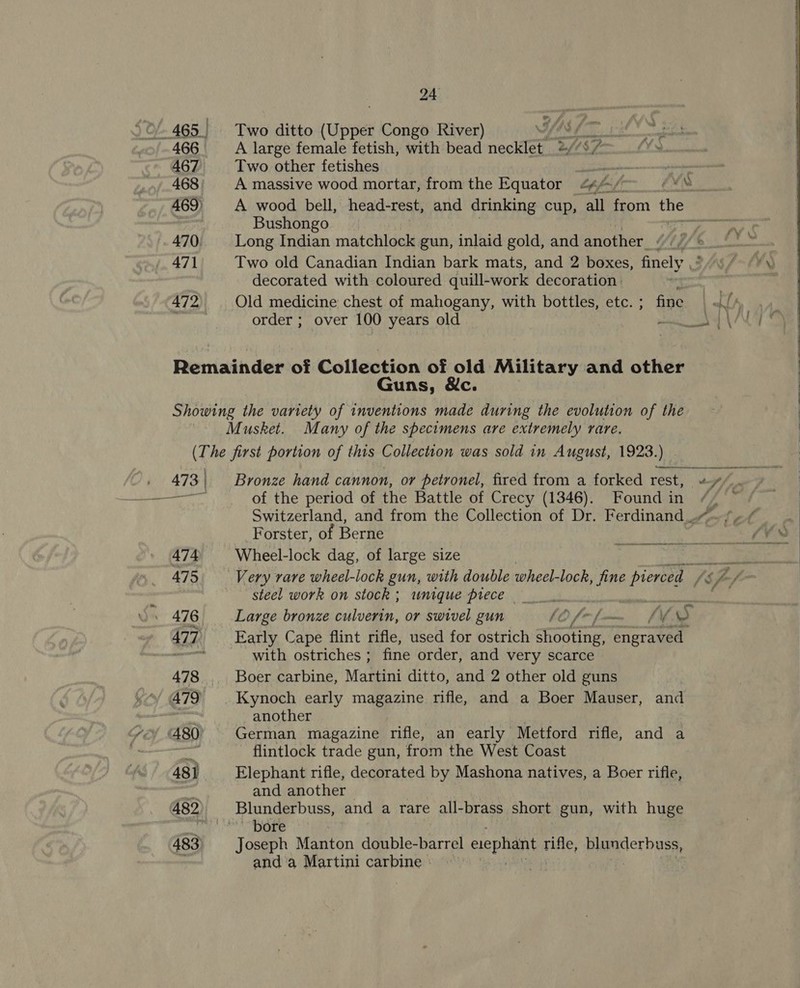 24
465 Two ditto (Upper Congo River)
466 A large female fetish, with bead necklet
467 Two other fetishes
468 A massive wood mortar, from the Equator
469 A wood bell, head-rest, and drinking cup, all from the
Bushongo
470 Long Indian matchlock gun, inlaid gold, and another
471 Two old Canadian Indian bark mats, and 2 boxes, finely
decorated with coloured quill-work decoration
472 Old medicine chest of mahogany, with bottles, etc. ; fine
order ; over 100 years old
Remainder of Collection of old Military and other
Guns, &c.
Showing the variety of inventions made during the evolution of the
Musket. Many of the specimens are extremely rare.
(The first portion of this Collection was sold in August, 1923.)
473 Bronze hand cannon, or petronel, fired from a forked rest,
of the period of the Battle of Crecy (1346). Found in
Switzerland, and from the Collection of Dr. Ferdinand
Forster, of Berne
474 Wheel-lock dag, of large size
475 Very rare wheel-lock gun, with double wheel-lock, fine pierced
steel work on stock ; unique piece
476 Large bronze culverin, or swivel gun
477 Early Cape flint rifle, used for ostrich shooting, engraved
with ostriches ; fine order, and very scarce
478 Boer carbine, Martini ditto, and 2 other old guns
479 Kynoch early magazine rifle, and a Boer Mauser, and
another
480 German magazine rifle, an early Metford rifle, and a
flintlock trade gun, from the West Coast
481 Elephant rifle, decorated by Mashona natives, a Boer rifle,
and another
482 Blunderbuss, and a rare all-brass short gun, with huge
bore
483 Joseph Manton double-barrel elephant rifle, blunderbuss,
and a Martini carbine